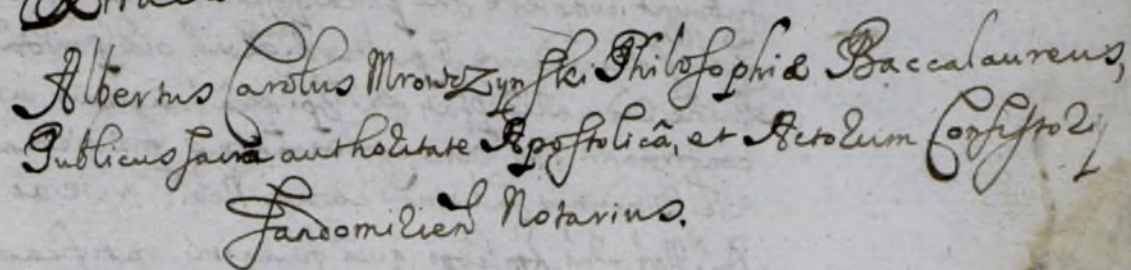 Albertus Carolus Mrowczynski Philosophiæ Baccalaureus,
Publicus sacrâ authoritate Apostolicã, et Actorum Consistorij
Sandomirien Notarius.